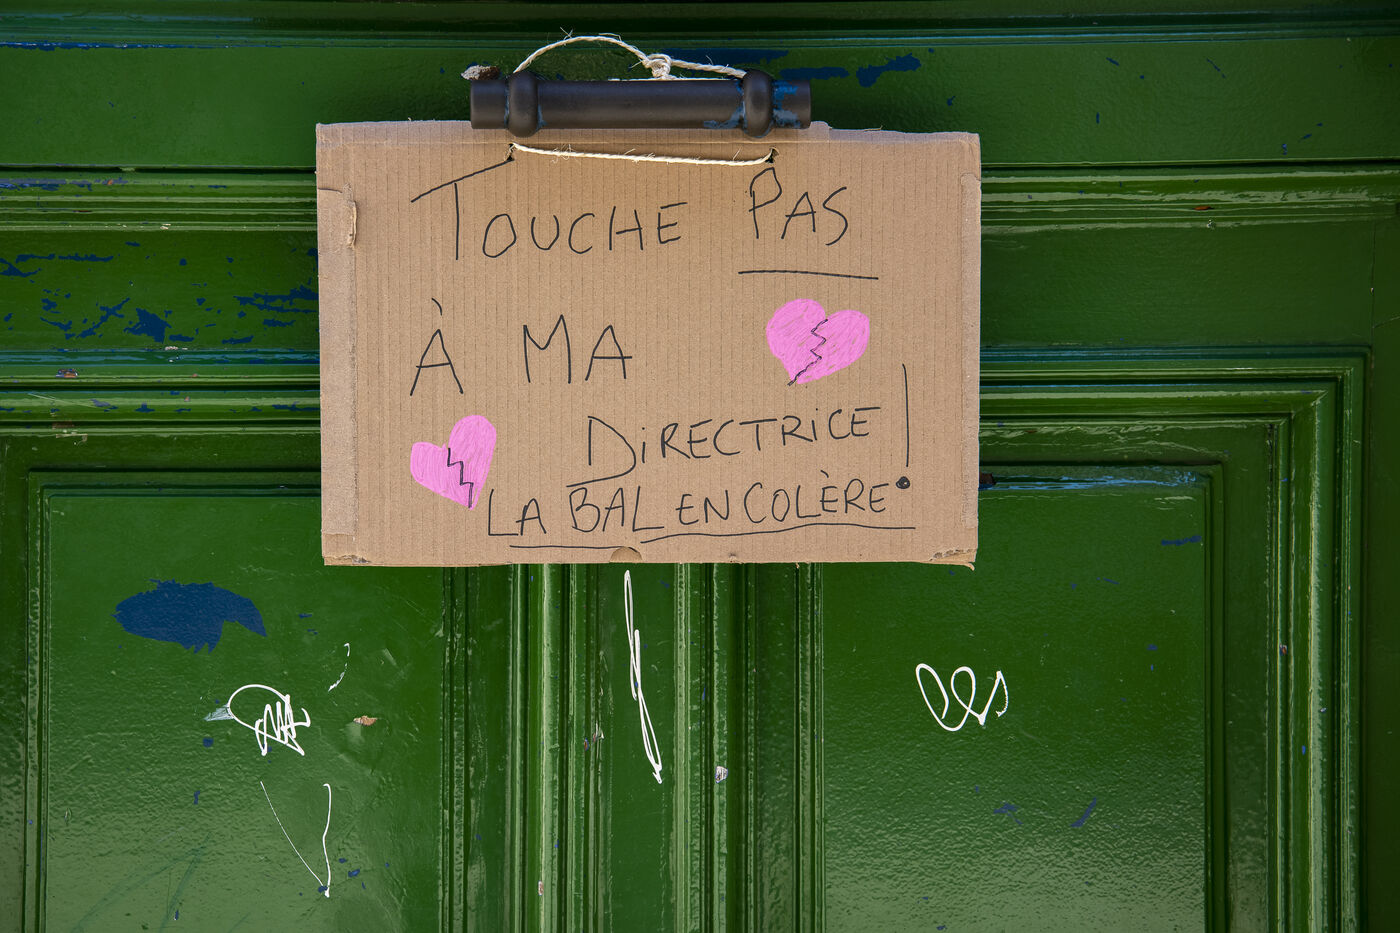 TOUCHE PAS
À MA
DIRECTRICE !
LA BAL EN COLÈRE